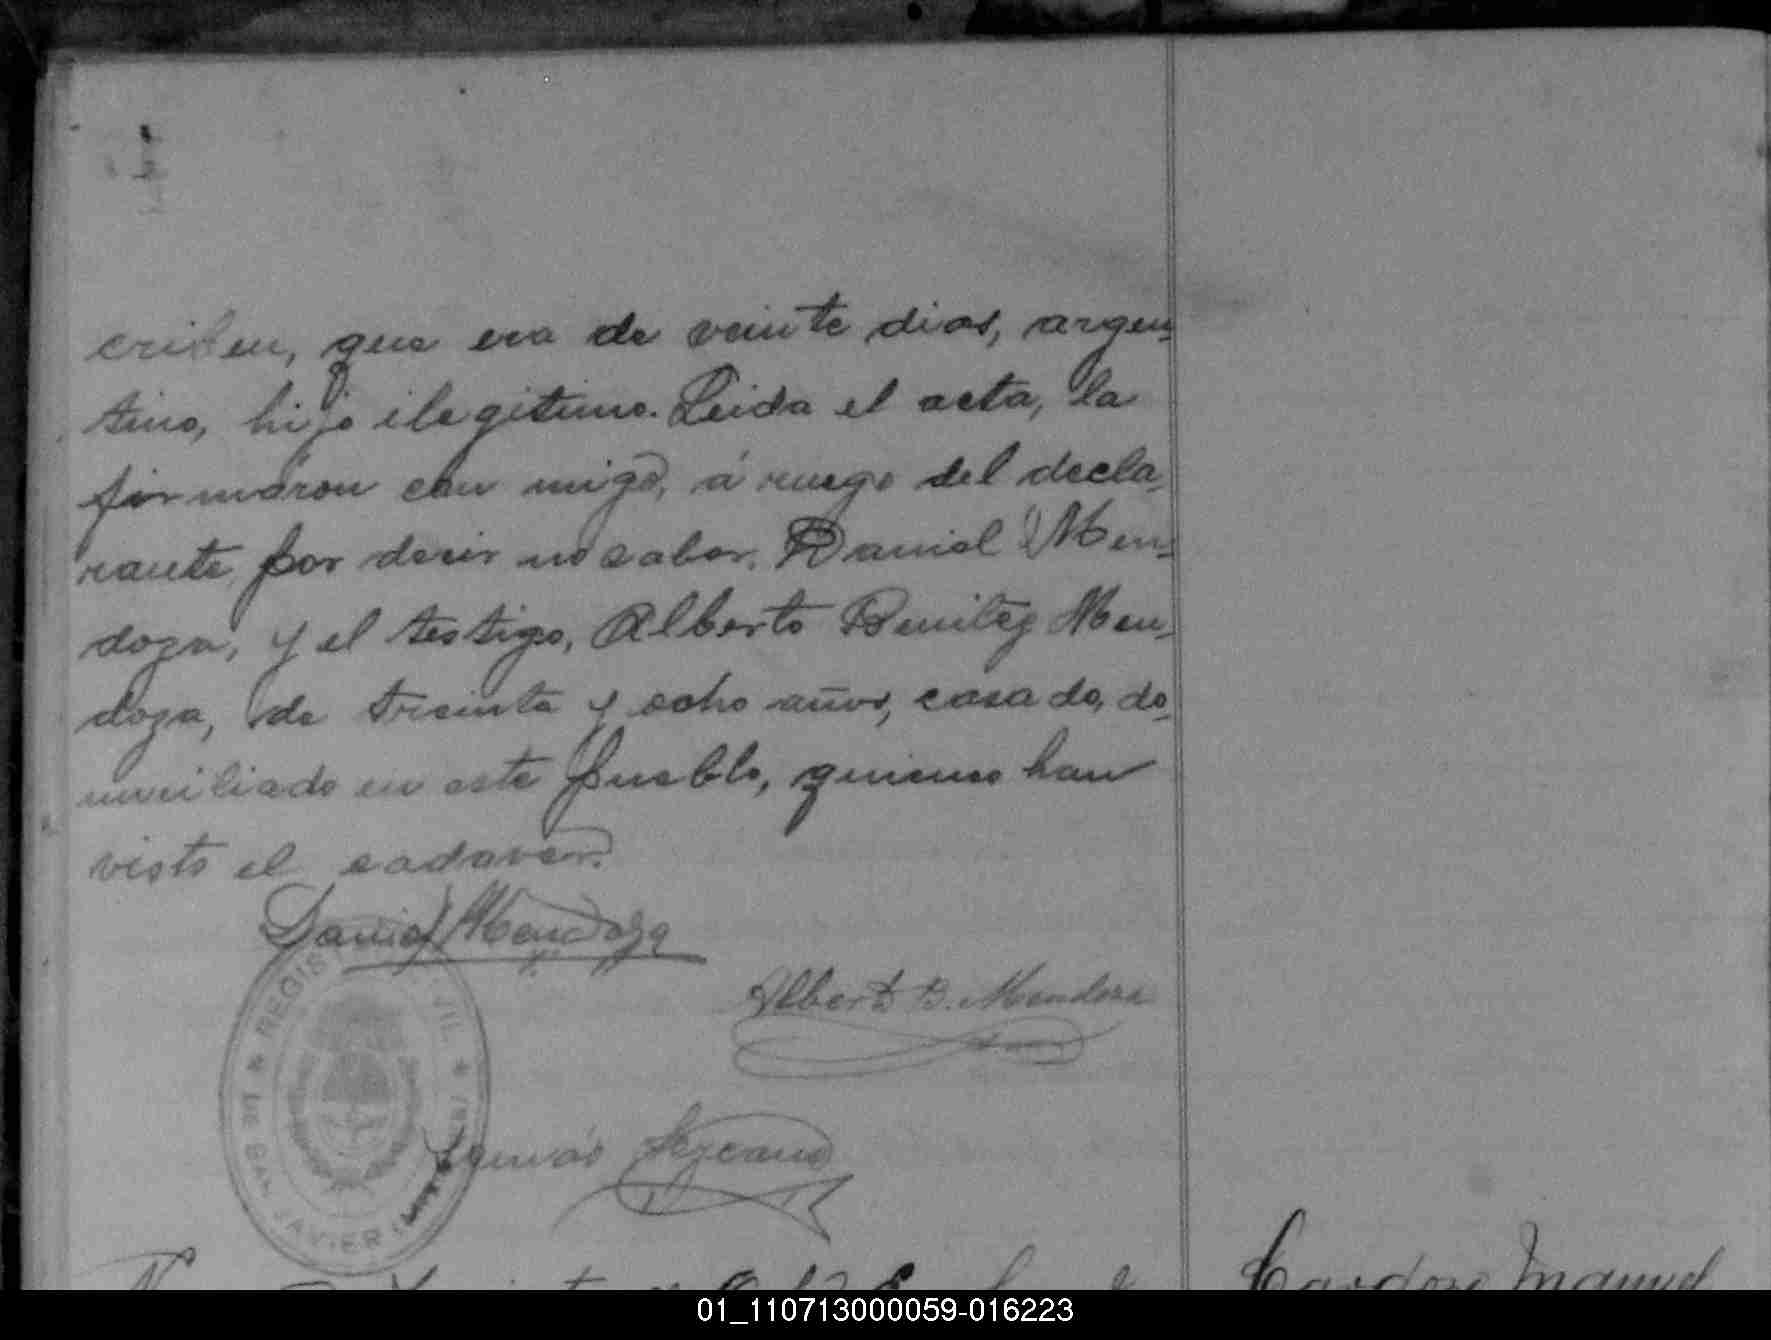 criben, que era de veinte dias, argen-
tino, hijo ilegitimo. Leida el acta, la
firmaron con migo, á ruego del decla-
rante por decir no saber, Daniel Men-
doza, y el testigo, Alberto Benitez Men-
doza, de treinta y ocho años, casado, do-
miciliado en este pueblo, quienes han
visto el cadaver.
Daniel Mendoza
Alberto B. Mendoza
REGIS VIL
DE SAN JAVIER
Tomás
Cardozo Manuel
01_110713000059-016223